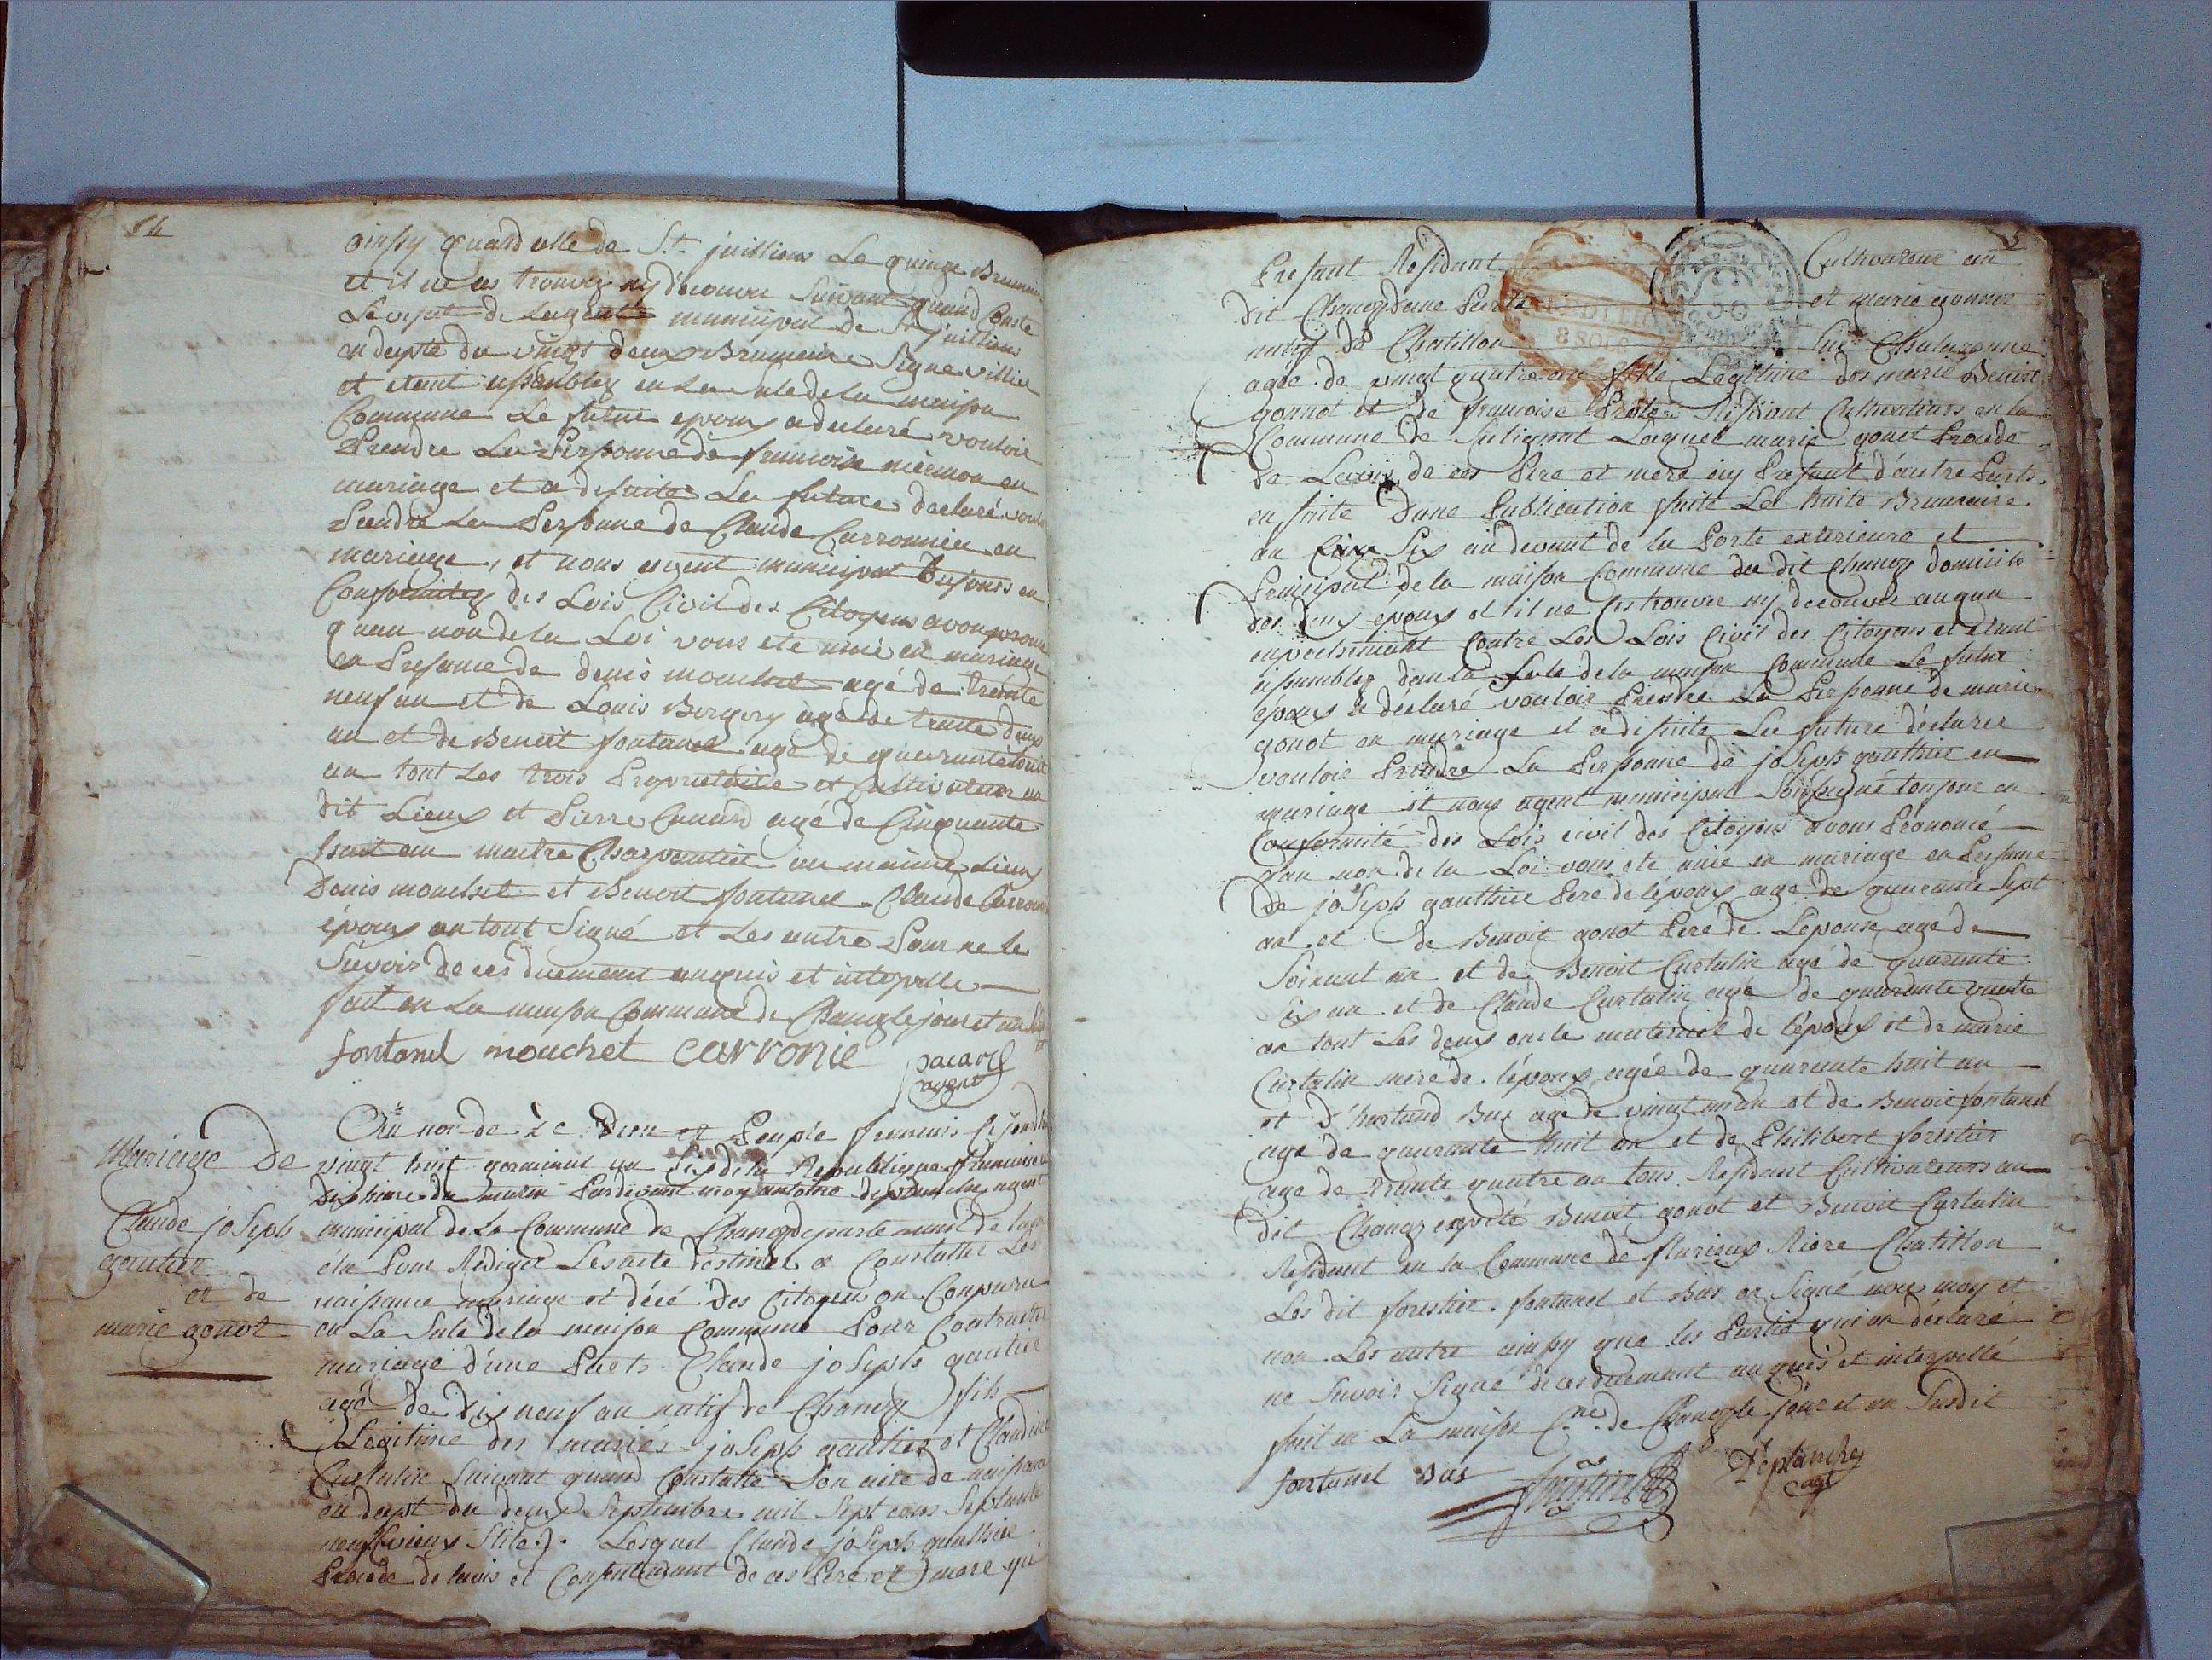 14
ainsy quand elle de St. juilliens Le quinze Brumaire
et il ne ces trouvez ny decouver suivant quand Conste
Le visat de Lagent municipal de St juilliens
en depte du vingt deux Brumaire Signe villier
et etant assemblez en La sale de la maison
Commune Le futur epoux a declaré vouloir
Prendre La Personne de francoise mermon en
mariage et a desuite La future declaré vouloir
Prendre La Personne de Claude Carronnier en
mariage, et nous agent municipal toujours en
Conformitez des Lois Civil des Citoyens avons prononcé
quau non de la Loi vous ete unie en mariage
en Presance de denis mouchet agé de trente
neuf an et de Louis Bergery agé de trente deux
an et de Benoit fontanel agé de quarante
an tout Les trois Proprietaire et Cultivateur au
dit Lieux et Pierre Canard agé de Cinquante
huit an maitre Charpantier au maime Lieux
Denis mouchet et Benoit fontanel Claude Carronnie
époux an tout Signé et Les autre Pour ne le
Savoir de ces duement enquis et interpelle
fait en La maison Commune de Changy le jour et an
fontanel mouchet carronie pacard
agent
Mariage De
Claude joSeph
gautier
et de
marie gonot
Au non de Le Dieu et Peuple francais Cejourdhui
vingt huit germinal an Six de la Republique francaise
Dix hure du matin Pardevant moy antoine deplanche agent
municipal de La Commune de Changy departemant de lain
élu Pour Rédiger Les acte destinée a Constatter Les
naissance mariage et décé des Citoyens on Comparu
en La Sale de la maison Commune Pour Contracter
mariage d'une Parts Claude joSeph gautier
agé de Dix neuf an natif de Changy fils
Legitime des mariés joSeph gautier et Claudine
Curtalin Suivant quand Constatte Son acte de naissance
en dapt du deux Septembre mil Sept cens Septante
neuf (vieux Stile). Lesquel Claude joSeph gauthier
Procede de lavis et Consentemant de ces Pere et mere yci
Presant Résidant Cultivateur au
dit Changy Dune Parts et marie gonnot
natif de Chatillon Sur Chalaronne
agée de vingt quatre an fille Legitime des marié Benoit
gonnot et de francoise Prost Résidant Cultivateurs en la
Commune de Sulignat Laquel marie gonot Procede
de Lavis de ces Pere et mere icy Presant d'autre Parts
en suite Dune Publication faite Le huite Brumaire
an Six au devant de la Porte exterieure et
Principal de la maison Commune du dit Changy domicile
des deux epoux et il ne ces trouvee ny decouver auqun
enpechemant Contre Les Lois Civil des Citoyens et etant
assemblez dans la Sale de la maison Commune Le futur
epoux a déclaré vouloir Prendre La Personne de marie
gonot en mariage et a desuite La future déclarer
vouloir Prendre La Personne de joSeph gauthier en
mariage et nous agent municipal Soussigné toujour en
Conformité des Lois civil des Citoyens avons Prononcé
quau non de la Loi vous ete unie en mariage en Presance
de joSeph gauthier Pere de lépoux agé de quarante Sept
an et de Benoit gonot Pere de Lepouse age de
Soixant an et de Benoit Curtalin agé de quarante
Six an et de Claude Curtalin agé de quarante quatre
an tout Les deux oncle maternel de lépoux et de marie
Curtalin mere de lépoux agée de quarante huit an
et Bas age de vingt un an et de Benoit fontanel
age de quarante huit an et de Philibert forestier
age de trante quatre an tous Résidant Cultivateurs au
dit Changy excepté Benoit gonot et Benoit Curtalin
Résidant en la Commune de flurieux Riere Chatillon
Les dit forestier fontanel et Bas on Signé avec moy et
non Les autre ainsy que les Partie qui on déclaré
ne Savoir Signé de ces duemant anquis et interpellé
fait en La maison Cne de Changy le jour et an Susdit
fontanel Bas forestier Deplanche
agt